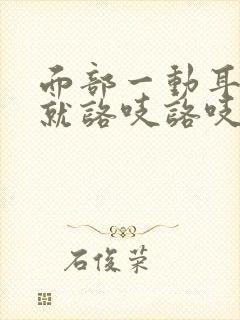 而部一動耳
就詻吱詻吱
石俊荣